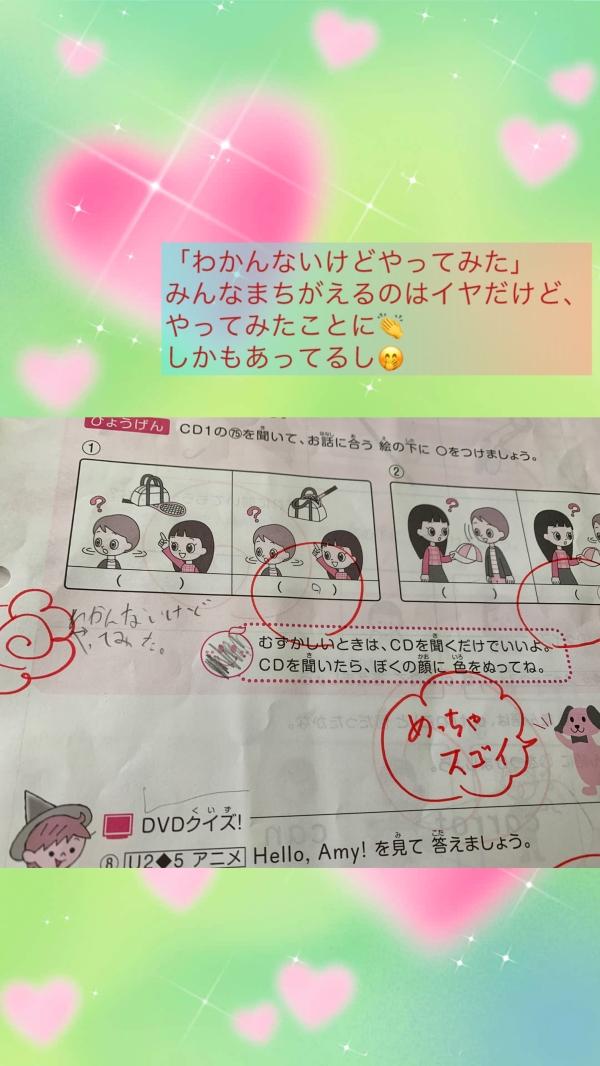 「わかんないけどやってみた」
みんなまちがえるのはイヤだけど、
やってみたことに👏
しかもあってるし🤭
ひょうげん CD1の㊆を聞いて、お話に合う 絵の下に ○をつけましょう。
①
②
?
?
?
?
( )
( ○ )
( )
(
わかんないけど
やってみた。
むずかしいときは、CDを聞くだけでいいよ。
CDを聞いたら、ぼくの顔に 色をぬってね。
めっちゃ
スゴイ
DVDクイズ!
⑧ U2◆5 アニメ Hello, Amy! を見て 答えましょう。